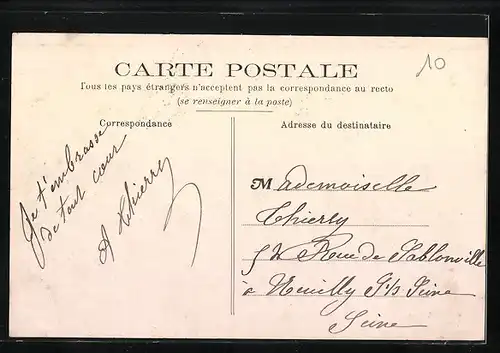 10
CARTE POSTALE
Tous les pays étrangers n'acceptent pas la correspondance au recto
(se renseigner à la poste)
Correspondance
Je t'embrasse
de tout cœur
A Thierry
Adresse du destinataire
Mademoiselle
Thierry
Rue de Sablonville
à Neuilly s/ Seine
Seine